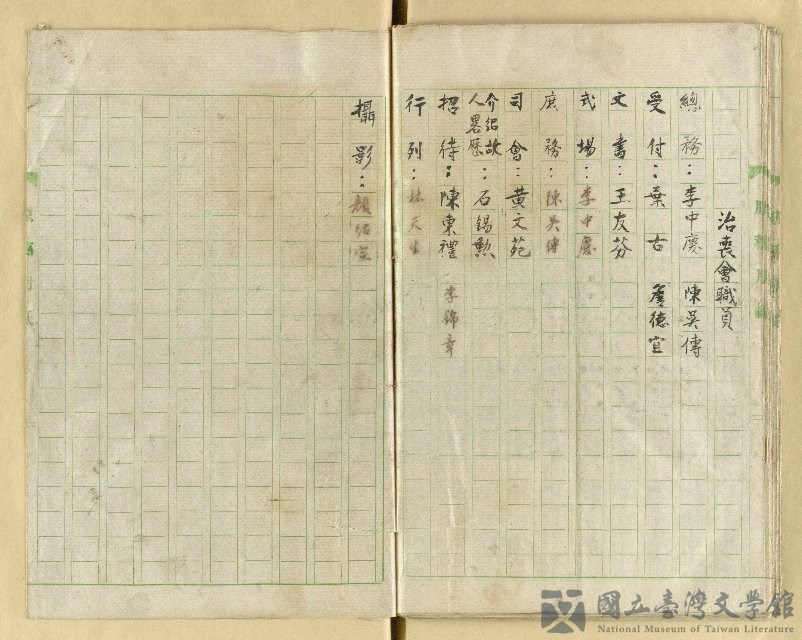 治喪會職員
總務：李中慶 陳吳傳
受付：葉古 詹德宜
文書：王友芬
式場：李中慶
庶務：陳吳傳
司會：黃文苑
介紹故人畧歷：石錫勲
招待：陳東禮 李錦章
行列：林天生
攝影：顏
國立臺灣文學館
National Museum of Taiwan Literature